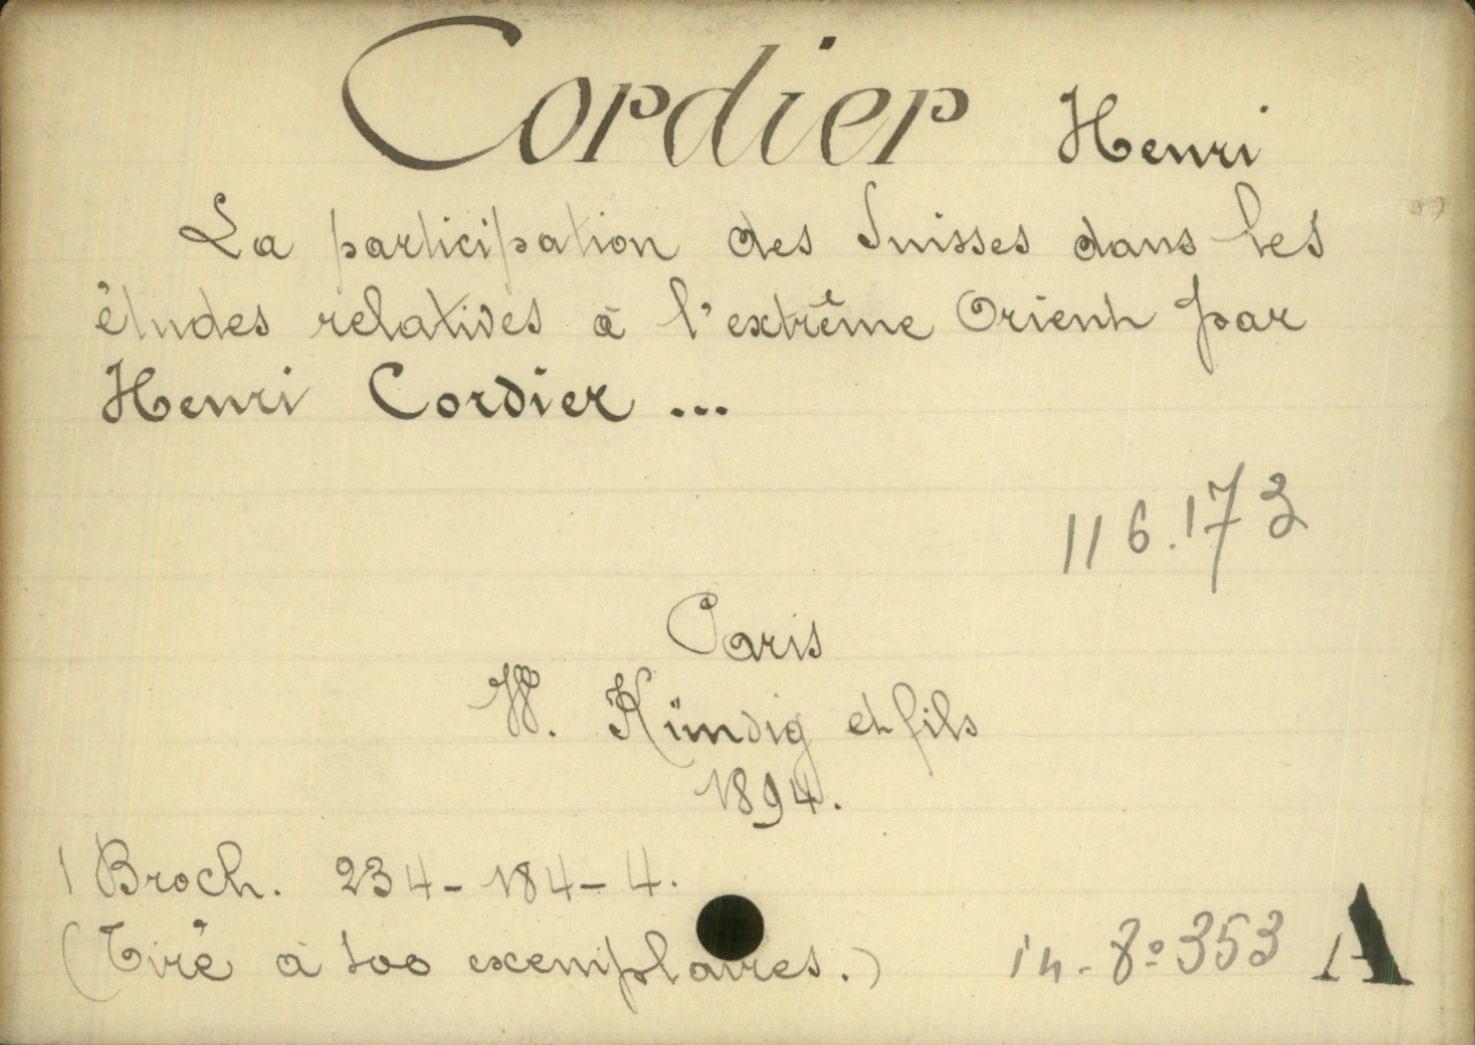 Cordier Henri
La participation des Suisses dans les
études relatives à l'extrême Orient par
Henri Cordier ...
116.173
Paris
W. Kündig et fils
1894.
1 Broch. 234-184-4.
(Tiré à 100 exemplaires.)
in-8º 353 A